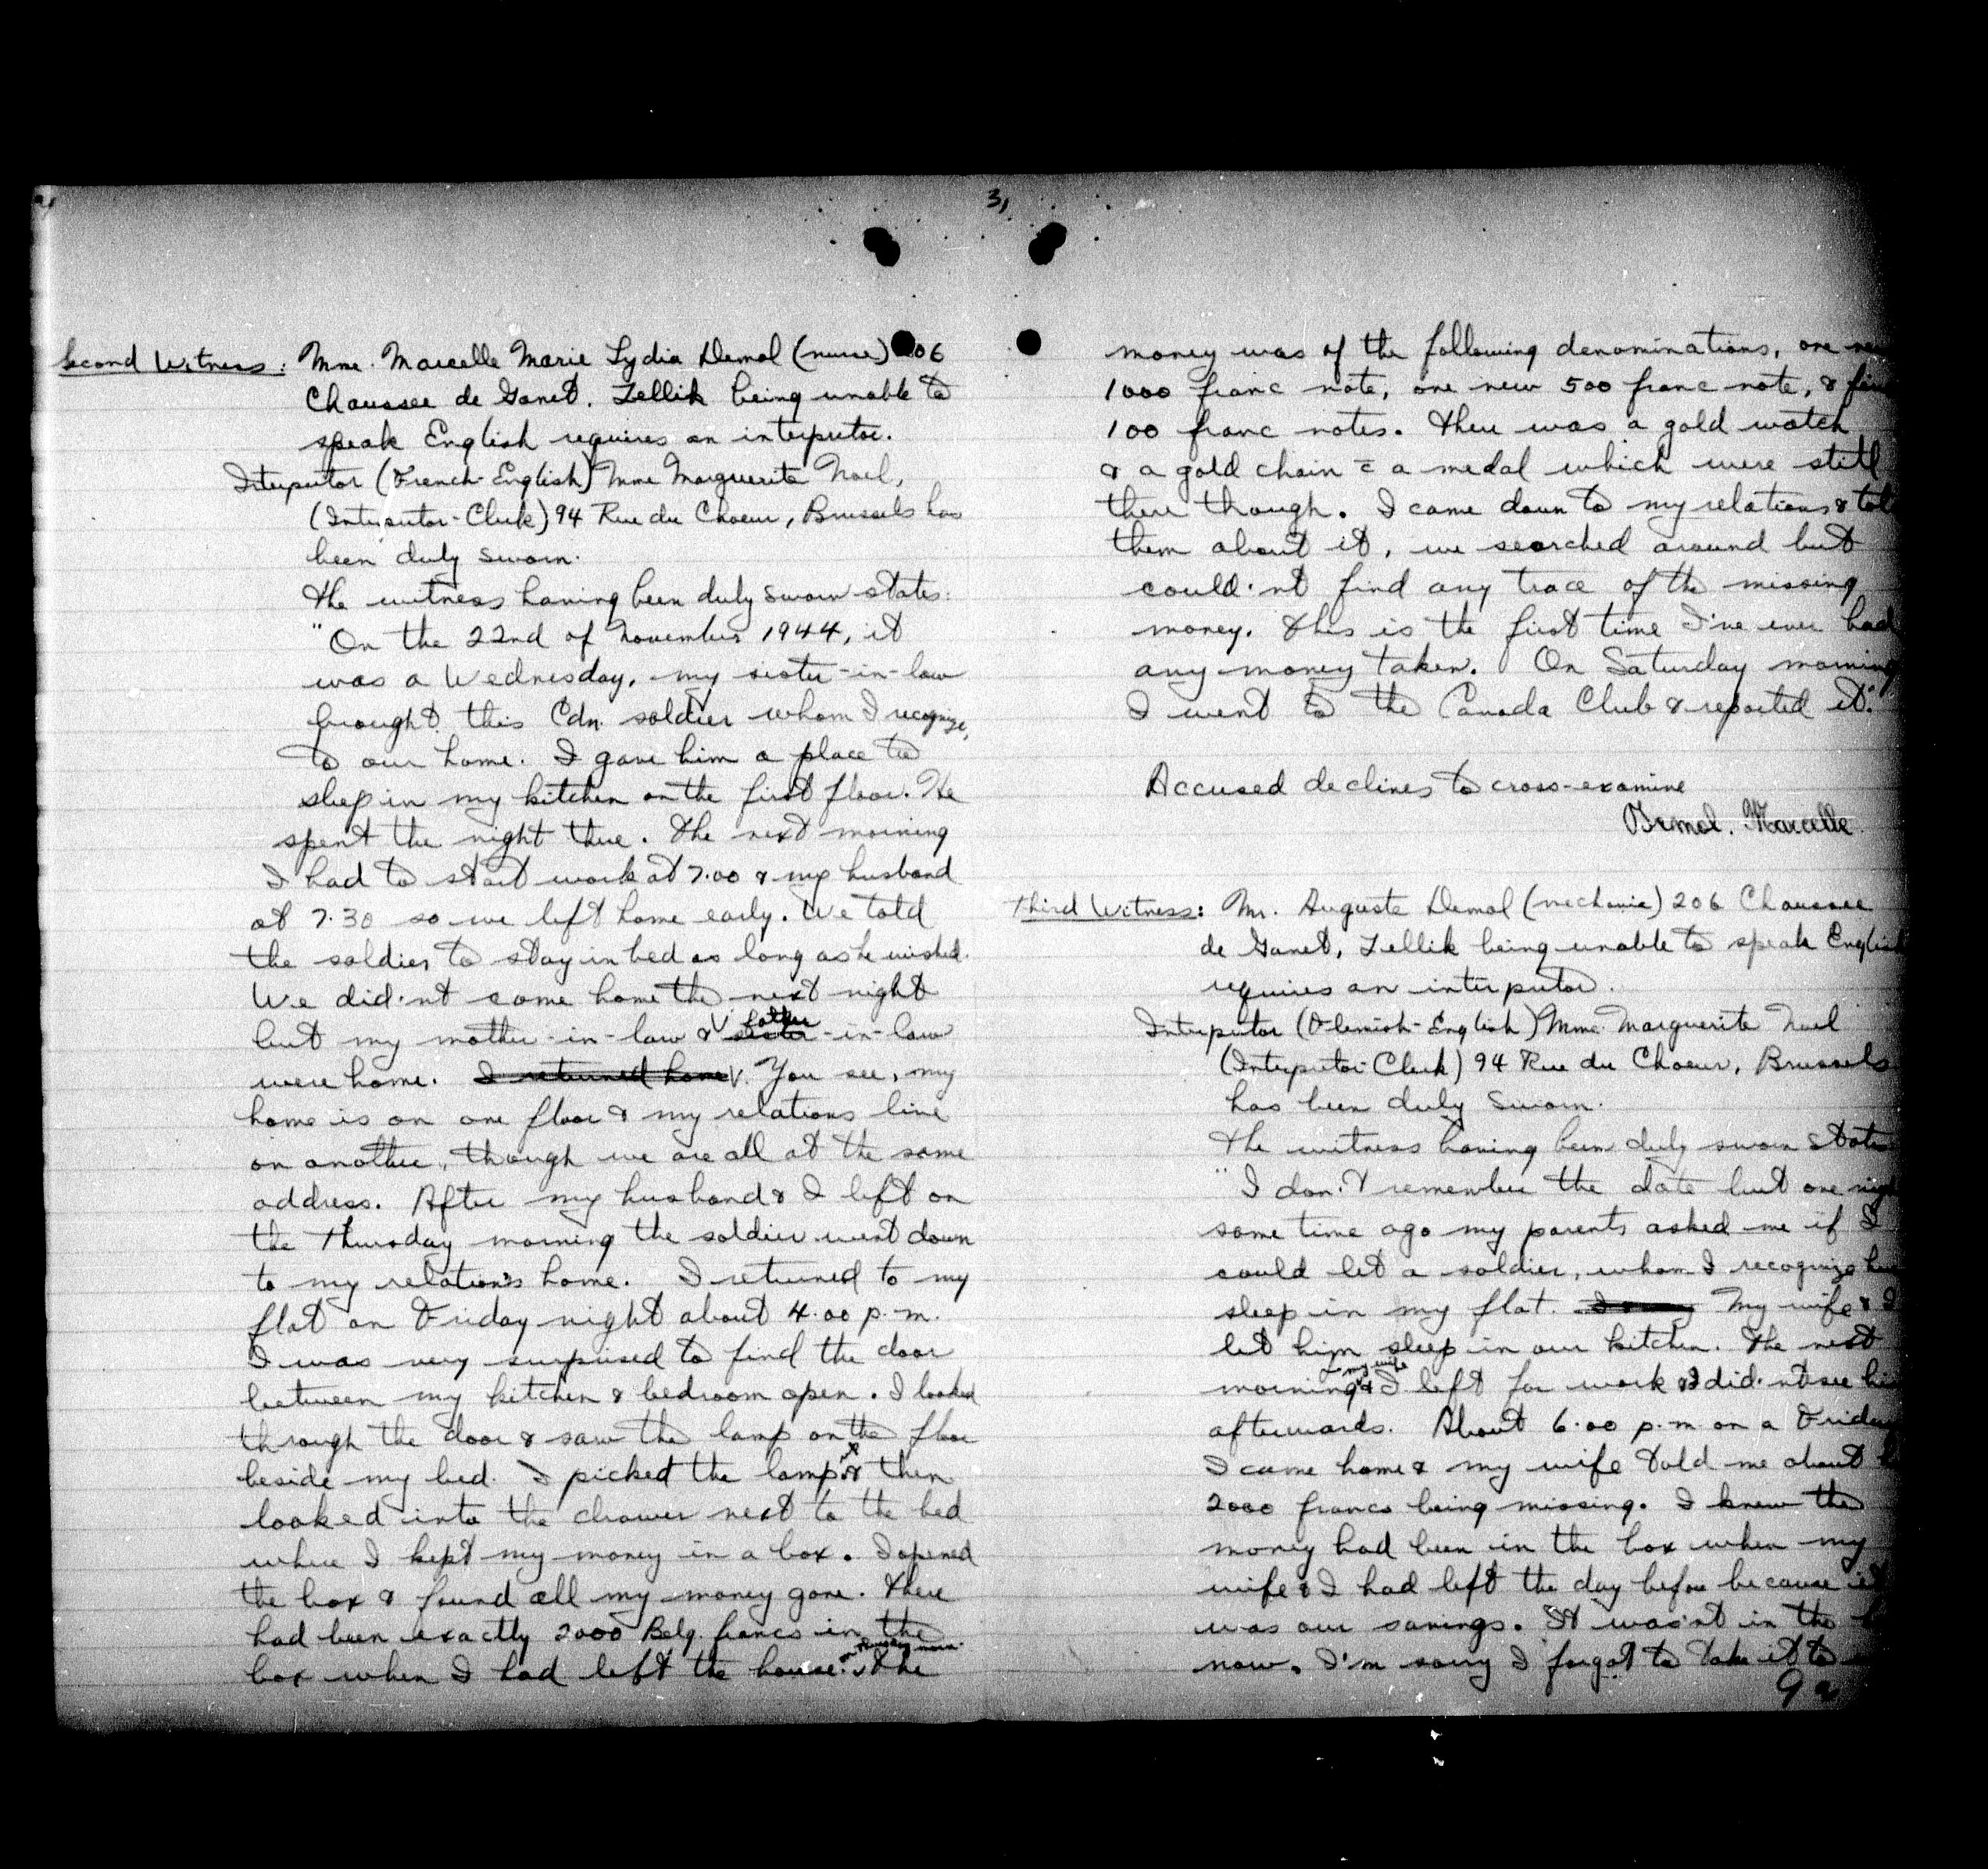 3,
Second Witness: Mme. Marcelle Marie Lydia Demol (nurse) 206
Chaussee de Ganet. Zellik being unable to
speak English requires an interputor.
Interputor (French-English) Mme Marguerite Noel,
(Interputor-Clerk) 94 Rue du Choeur, Brussels has
been duly sworn.
The witness having been duly sworn states:
"On the 22nd of November 1944, it
was a Wednesday, my sister-in-law
brought this Cdn. soldier whom I recognize,
to our home. I gave him a place to
sleep in my kitchen on the first floor. He
spent the night there. The next morning
I had to start work at 7.00 & my husband
at 7.30 so we left home early. We told
the soldier to stay in bed as long as he wished.
We did'nt come home the next night
but my mother-in-law & sister father-in-law
were home. I returned home. You see, my
home is on one floor & my relations live
on another, though we are all at the same
address. After my husband & I left on
the Thursday morning the soldier went down
to my relation's home. I returned to my
flat on Friday night about 4.00 p.m.
I was very surprised to find the door
between my kitchen & bedroom open. I looked
through the door & saw the lamp on the floor
beside my bed. I picked the lamp & then
looked into the drawer next to the bed
where I kept my money in a box. I opened
the box & found all my money gone. There
had been exactly 2000 Belg. francs in the
box when I had left the house on Thursday morn. The
money was of the following denominations, one new
1000 franc note, one new 500 franc note, & five
100 franc notes. There was a gold watch
& a gold chain c̄ a medal which were still
there though. I came down to my relations & told
them about it, we searched around but
could'nt find any trace of the missing
money. This is the first time I've ever had
any money taken. On Saturday morning
I went to the Canada Club & reported it."
Accused declines to cross-examine
Demol. Marcelle.
Third Witness: Mr. Auguste Demol (mechanic) 206 Chaussee
de Ganet, Zellik being unable to speak English
requires an interputor.
Interputor (Flemish-English) Mme. Marguerite Noel
(Interputor-Clerk) 94 Rue du Choeur, Brussels
has been duly sworn.
The witness having been duly sworn states
"I don't remember the date but one night
some time ago my parents asked me if I
could let a soldier, whom I recognize here
sleep in my flat. My wife & I
let him sleep in our kitchen. The next
morning my wife & I left for work & I did'nt see him
afterwards. About 6.00 p.m. on a Friday
I came home & my wife told me about
2000 francs being missing. I knew the
money had been in the box when my
wife & I had left the day before because it
was our savings. It was'nt in the
now. I'm sorry I forgot to take it to
9a